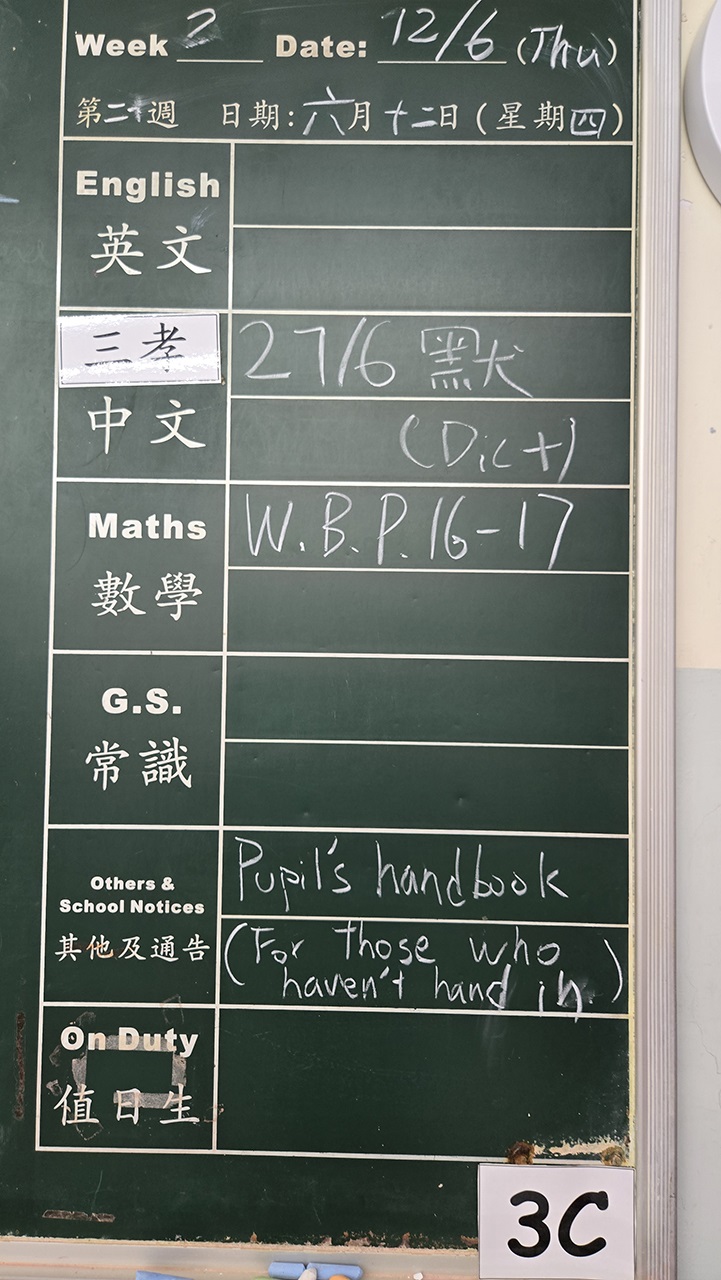 Week 2 Date: 12/6 (Thu)
第二十週 日期: 六月十二日 (星期四)
English
英文
三孝 27/6 默
中文 (Dict)
Maths W.B.P.16-17
數學
G.S.
常識
Others & School Notices Pupil's handbook
其他及通告 (For those who haven't hand in)
On Duty
值日生
3C